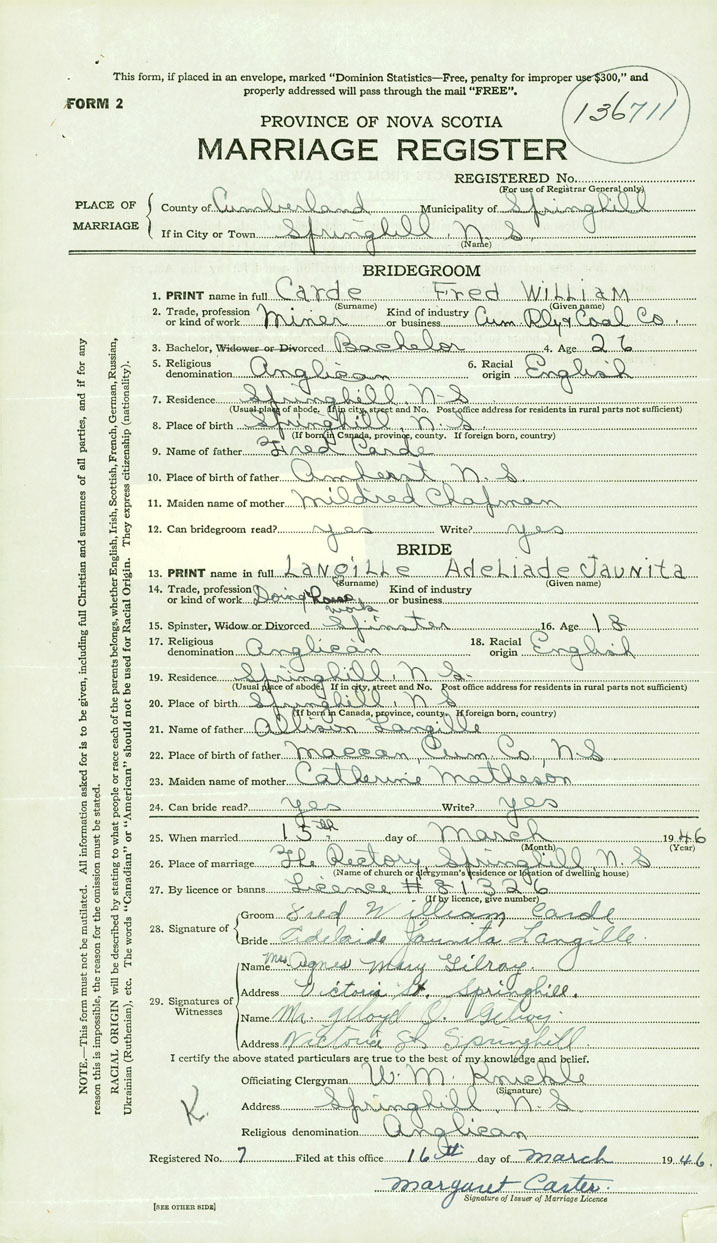 This form, if placed in an envelope, marked "Dominion Statistics—Free, penalty for improper use $300," and
properly addressed will pass through the mail "FREE".
FORM 2
136711
PROVINCE OF NOVA SCOTIA
MARRIAGE REGISTER
REGISTERED No.
(For use of Registrar General only)
PLACE OF MARRIAGE
County of Cumberland Municipality of Springhill
If in City or Town Springhill, N.S.
(Name)
BRIDEGROOM
1. PRINT name in full Carde Fred William
(Surname) (Given name)
2. Trade, profession or kind of work Miner Kind of industry or business Cum Rly & Coal Co.
3. Bachelor, Widower or Divorced Bachelor 4. Age 26
5. Religious denomination Anglican 6. Racial origin English
7. Residence Springhill, N-S
(Usual place of abode. If in city, street and No. Post office address for residents in rural parts not sufficient)
8. Place of birth Springhill, N.S.
(If born in Canada, province, county. If foreign born, country)
9. Name of father Fred Carde
10. Place of birth of father Amherst N.S.
11. Maiden name of mother Mildred Chapman
12. Can bridegroom read? yes Write? yes
BRIDE
13. PRINT name in full Langille Adeliade Jaunita
(Surname) (Given name)
14. Trade, profession or kind of work Doing house work Kind of industry or business
15. Spinster, Widow or Divorced Spinster 16. Age 18
17. Religious denomination Anglican 18. Racial origin English
19. Residence Springhill, N.S.
(Usual place of abode. If in city, street and No. Post office address for residents in rural parts not sufficient)
20. Place of birth Springhill, N.S
(If born in Canada, province, county. If foreign born, country)
21. Name of father Allison Langille
22. Place of birth of father Maccan, Cum. Co., N.S
23. Maiden name of mother Catherine Matheson
24. Can bride read? yes Write? yes
25. When married 15th day of March 1946
(Month) (Year)
26. Place of marriage The Rectory, Springhill, N.S
(Name of church or clergyman's residence or location of dwelling house)
27. By licence or banns Licence #81326
(If by licence, give number)
28. Signature of
Groom Fred William Carde
Bride Adelaide Jaunita Langille
29. Signatures of Witnesses
Name Mrs Agnes Mary Gilroy
Address Victoria St. Springhill.
Name Mr. Lloyd Gilroy.
Address Victoria St Springhill
I certify the above stated particulars are true to the best of my knowledge and belief.
Officiating Clergyman W. M. Knickle
(Signature)
K.
Address Springhill, N.S
Religious denomination Anglican
Registered No. 7 Filed at this office 16th day of March 1946.
Margaret Carter.
Signature of Issuer of Marriage Licence
[SEE OTHER SIDE]
NOTE.—This form must not be mutilated. All information asked for is to be given, including full Christian and surnames of all parties, and if for any
reason this is impossible, the reason for the omission must be stated.
RACIAL ORIGIN will be described by stating to what people or race each of the parents belongs, whether English, Irish, Scottish, French, German, Russian,
Ukrainian (Ruthenian), etc. The words "Canadian" or "American" should not be used for Racial Origin. They express citizenship (nationality).